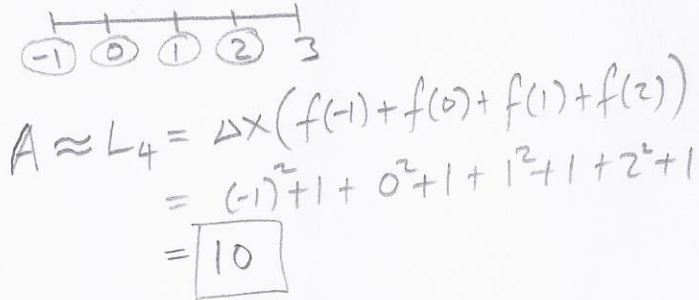 -1 0 1 2 3
A ≈ L₄ = Δx(f(-1) + f(0) + f(1) + f(2))
= (-1)²+1 + 0²+1 + 1²+1 + 2²+1
= 10